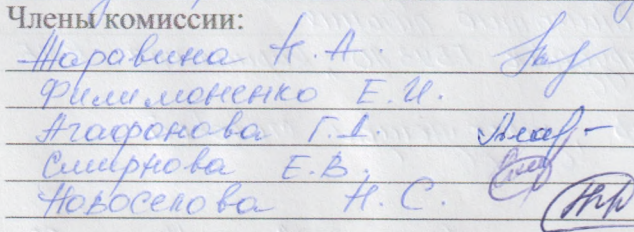 Члены комиссии:
Жаравина Н.А.
Филимоненко Е.И.
Агафонова Г.А.
Смирнова Е.В.
Новоселова Н.С.